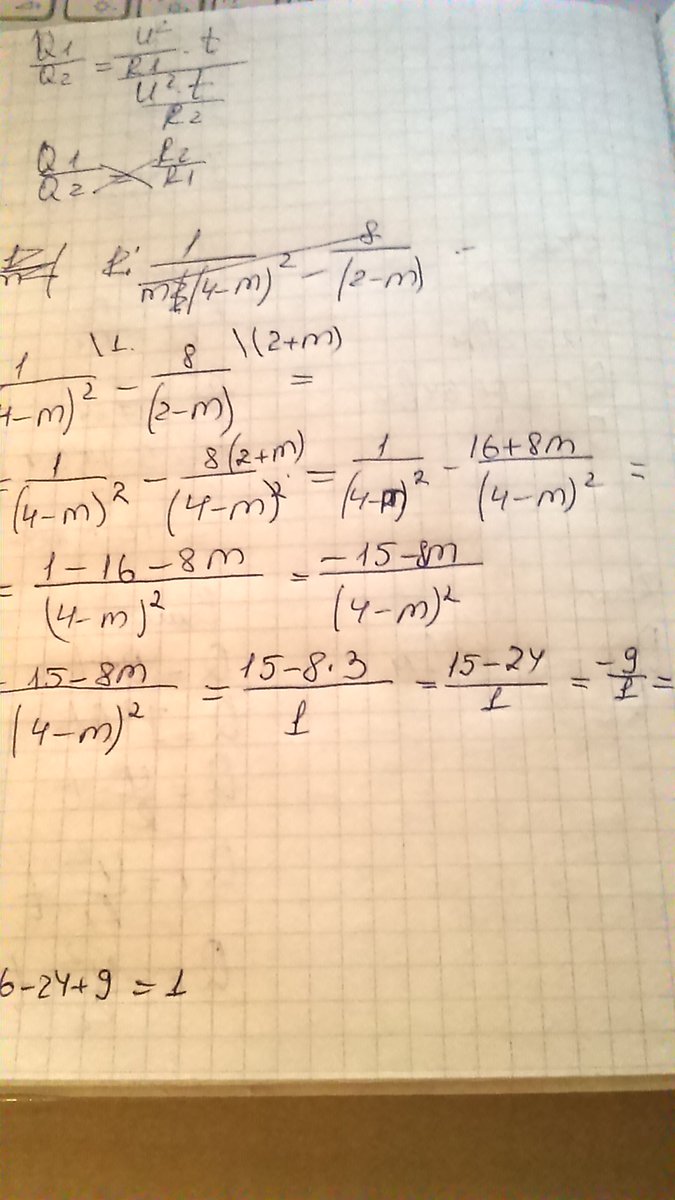 Q1/Q2 = (U²/R1 · t)/(U²·t/R2)
Q1/Q2 = R2/R1
1/(4-m)² - 8/(2-m)
1/(4-m)² \1. - 8/(2-m) \(2+m) =
= 1/(4-m)² - 8(2+m)/(4-m)² = 1/(4-m)² - (16+8m)/(4-m)² =
= (1-16-8m)/(4-m)² = (-15-8m)/(4-m)²
(-15-8m)/(4-m)² = (15-8·3)/1 = (15-24)/1 = -9/1 =
6-24+9 = 1